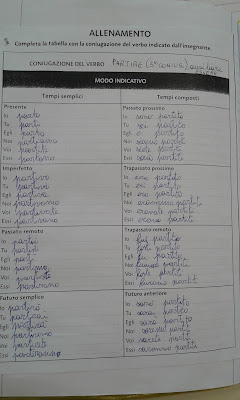 ALLENAMENTO
Completa la tabella con la coniugazione del verbo indicato dall'insegnante.
CONIUGAZIONE DEL VERBO PARTIRE
MODO INDICATIVO
Tempi semplici
Tempi composti
Presente
Io parto
Tu parti
Egli parte
Noi partiamo
Voi partite
Essi partono
Passato prossimo
Io sono partito
Tu sei partito
Egli è partito
Noi siamo partiti
Voi siete partiti
Essi sono partiti
Imperfetto
Io partivo
Tu partivi
Egli partiva
Noi partivamo
Voi partivate
Essi partivano
Trapassato prossimo
Io ero partito
Tu eri partito
Egli era partito
Noi eravamo partiti
Voi eravate partiti
Essi erano partiti
Passato remoto
Io partii
Tu
Egli partì
Noi partimmo
Voi partiste
Essi partirono
Trapassato remoto
Io fui partito
Tu fosti partito
Egli fu partito
Noi fummo partiti
Voi foste partiti
Essi furono partiti
Futuro semplice
Io partirò
Tu partirai
Egli partirà
Noi partiremo
Voi partirete
Essi partiranno
Futuro anteriore
Io sarò partito
Tu sarai partito
Egli sarà partito
Noi saremo partiti
Voi sarete partiti
Essi saranno partiti